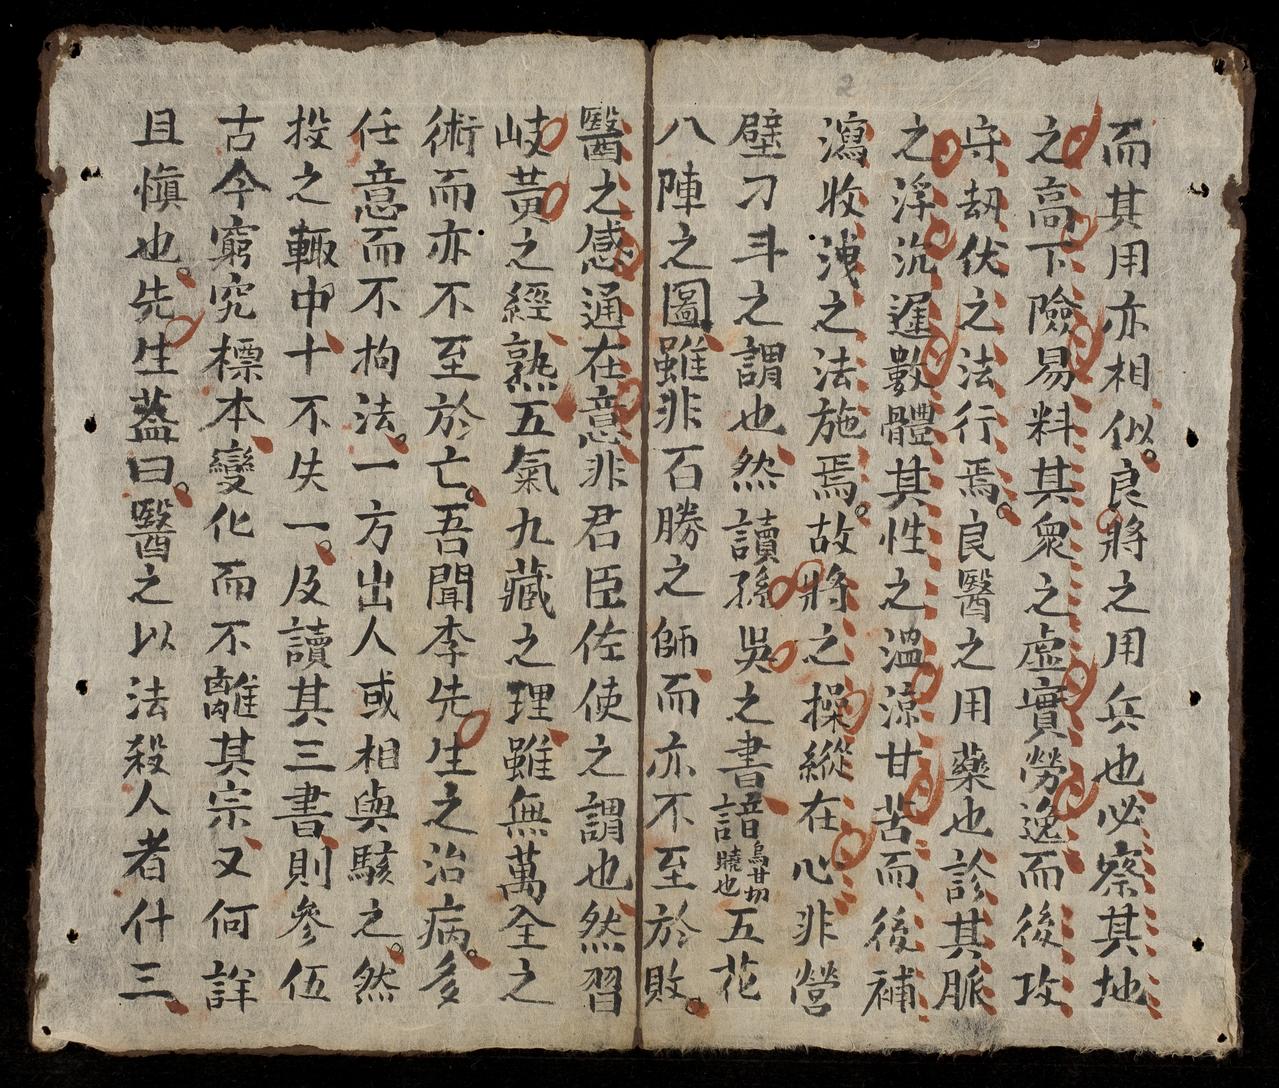 而其用亦相似。良將之用兵也必察其地
之高下險易料其衆之虛實勞逸而後攻
守刼伏之法行焉。良醫之用藥也診其脈
之浮沉遲數體其性之溫涼甘苦而後補
瀉收洩之法施焉。故將之操縱在心非營
壁刁斗之謂也然讀孫吳之書諳烏甘切曉也五花
八陣之圖雖非石勝之師而亦不至於敗。
醫之感通在意非君臣佐使之謂也然習
岐黃之經熟五氣九藏之理雖無萬全之
術而亦不至於亡。吾聞李先生之治病。多
任意而不拘法。一方出人或相與駭之。然
投之輙中十不失一。及讀其三書則參伍
古今窮究標本變化而不離其宗又何詳
且慎也。先生葢曰。醫之以法殺人者什三
2